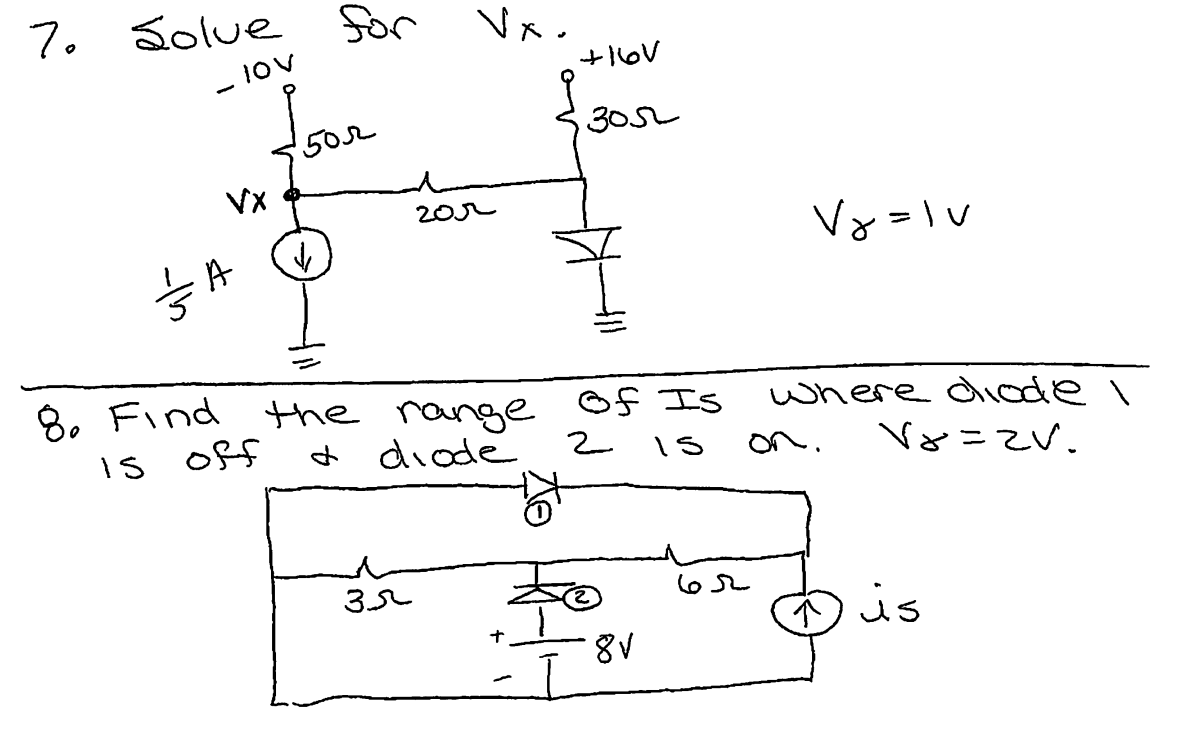 7. Solve for Vx.
-10V
+16V
50Ω
30Ω
Vx
20Ω
Vγ = 1V
1/5 A
8. Find the range of Is where diode 1
is off & diode 2 is on. Vγ = 2V.
1
3Ω
2
6Ω
is
+
8V
-